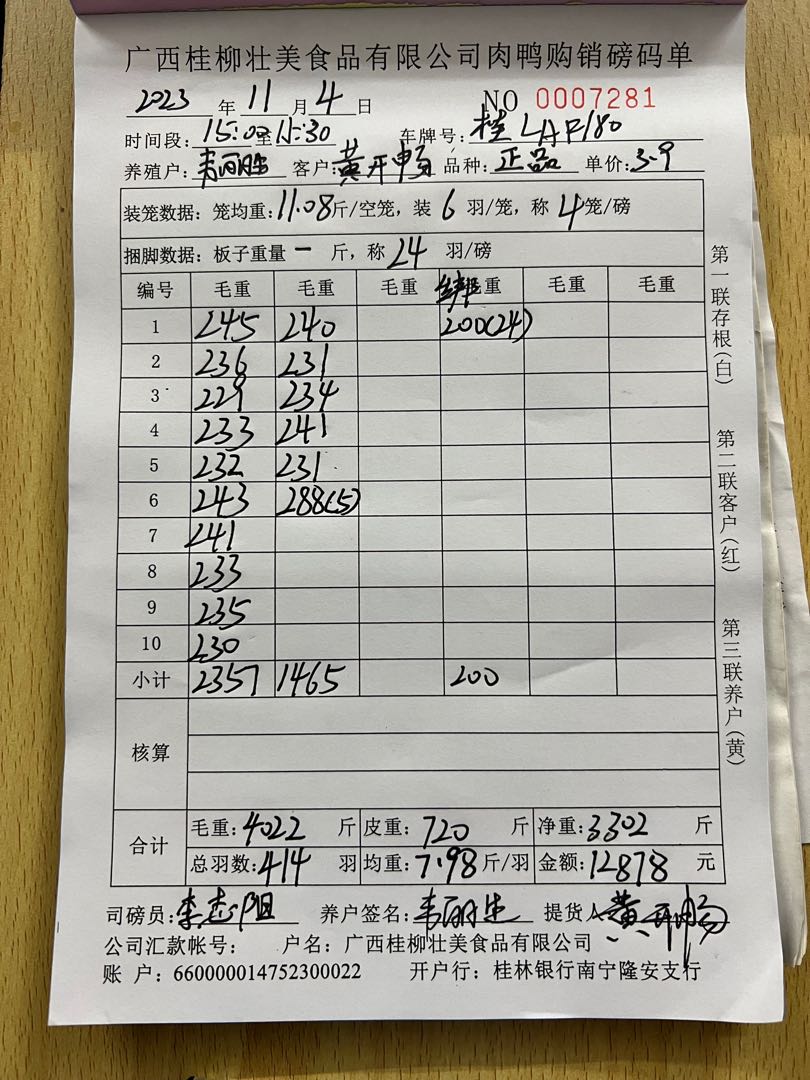 广西桂柳壮美食品有限公司肉鸭购销磅码单
2023 年 11 月 4 日 NO 0007281
时间段: 15:00 至 15:30 车牌号: 桂LAF180
养殖户: 韦丽生 客户: 黄开畅 品种: 正品 单价: 3.9
装笼数据: 笼均重: 11.08 斤/空笼, 装 6 羽/笼, 称 4 笼/磅
捆脚数据: 板子重量 一 斤, 称 24 羽/磅
编号 毛重 毛重 毛重 重 毛重 毛重
1 245 240 200(24)
2 236 231
3 229 234
4 233 241
5 232 231
6 243 288(5)
7 241
8 233
9 235
10 230
小计 2357 1465 200
核算
合计 毛重: 4022 斤 皮重: 720 斤 净重: 3302 斤
总羽数: 414 羽 均重: 7.98 斤/羽 金额: 12878 元
司磅员: 李 阳 养户签名: 韦丽生 提货人 黄开畅
公司汇款帐号: 户名: 广西桂柳壮美食品有限公司
账 户: 660000014752300022 开户行: 桂林银行南宁隆安支行
第一联存根(白)
第二联客户(红)
第三联养户(黄)